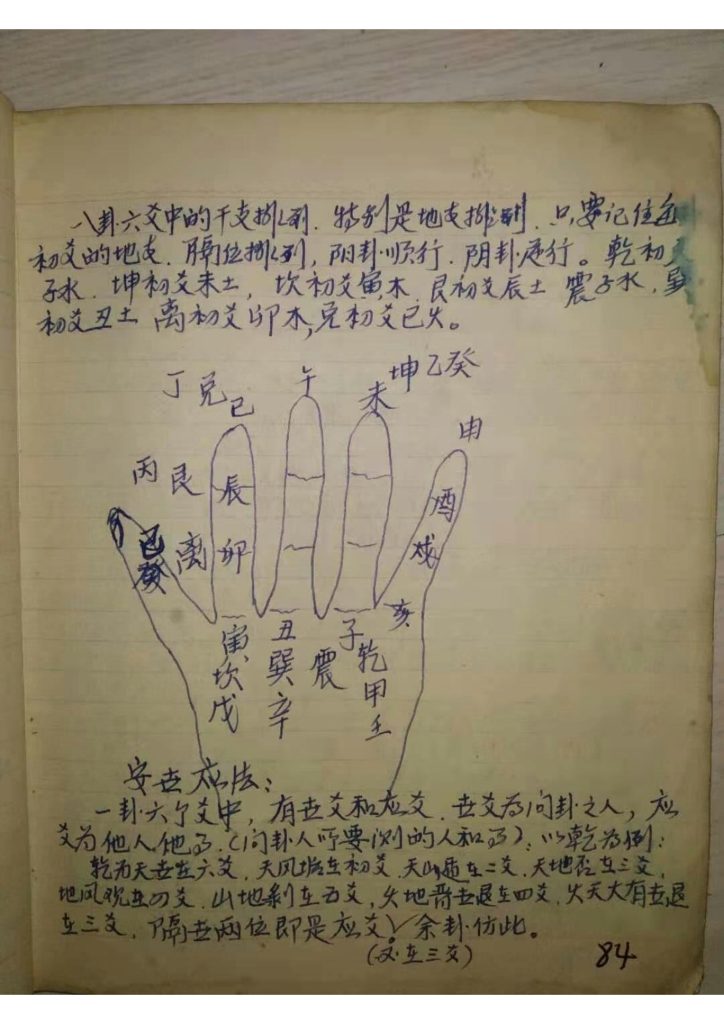 八卦六爻中的干支排列.特别是地支排列.只要记住
初爻的地支.隔位排列,阳卦顺行.阴卦逆行。乾初
子水.坤初爻未土,坎初爻寅木.艮初爻辰土 震子水.巽
初爻丑土 离初爻卯木,兑初爻巳火。
丁兑巳
午
未
坤乙癸
申
丙艮
辰
酉
己
离
卯
戌
亥
寅坎戊
丑巽辛
震
子
乾甲壬
安世应法:
一卦六个爻中,有世爻和应爻.世爻为问卦之人,应
爻为他人他事.(问卦人所要测的人和事):以乾为例:
乾为天世在六爻.天风姤在初爻.天山遁在二爻.天地否在三爻,
地风观在四爻.山地剥在五爻,火地晋世退在四爻.火天大有世退
在三爻.隔世两位即是应爻。余卦仿此。
在三爻)
84